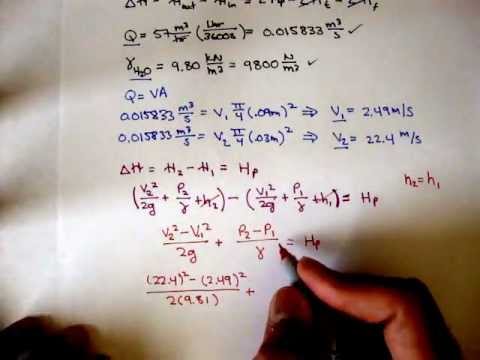 ΔH = H_out − H_in =
Q = 57 m³/hr (1 hr/3600s) = 0.015833 m³/s ✓
γ_H2O = 9.80 kN/m³ = 9800 N/m³ ✓
Q = VA
0.015833 m³/s = V₁ π/4 (.09m)² ⇒ V₁ = 2.49 m/s
0.015833 m³/s = V₂ π/4 (.03m)² ⇒ V₂ = 22.4 m/s
ΔH = H₂ − H₁ = Hp
(V₂²/2g + P₂/γ + h₂) − (V₁²/2g + P₁/γ + h₁) = Hp h₂ = h₁
(V₂² − V₁²)/2g + (P₂ − P₁)/γ = Hp
((22.4)² − (2.49)²)/2(9.81) +